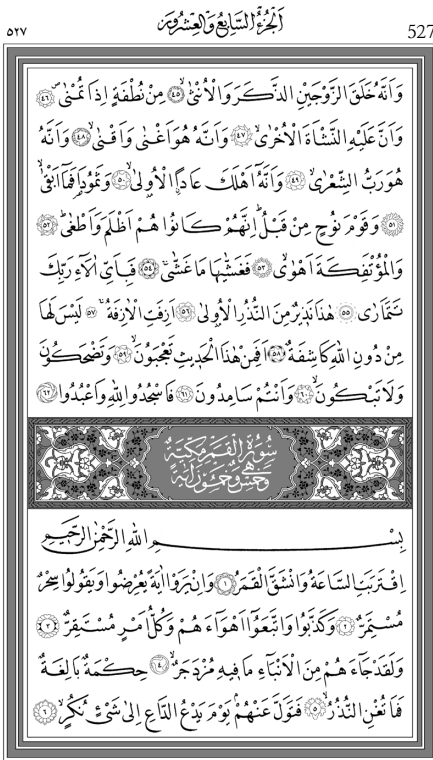 ٥٢٧ اَلْجُزْءُ السَّابِعُ وَالْعِشْرُونَ 527
وَاَنَّهُ خَلَقَ الزَّوْجَيْنِ الذَّكَرَ وَالْاُنْثٰىۙ ﴿٤٥﴾ مِنْ نُطْفَةٍ اِذَا تُمْنٰىۖ ﴿٤٦﴾
وَاَنَّ عَلَيْهِ النَّشْاَةَ الْاُخْرٰىۙ ﴿٤٧﴾ وَاَنَّهُ هُوَ اَغْنٰى وَاَقْنٰىۙ ﴿٤٨﴾ وَاَنَّهُ
هُوَ رَبُّ الشِّعْرٰىۙ ﴿٤٩﴾ وَاَنَّهُٓ اَهْلَكَ عَادًاۨ الْاُو۫لٰىۙ ﴿٥٠﴾ وَثَمُودَا۬ فَمَٓا اَبْقٰىۙ
﴿٥١﴾ وَقَوْمَ نُوحٍ مِنْ قَبْلُۜ اِنَّهُمْ كَانُوا هُمْ اَظْلَمَ وَاَطْغٰىۜ ﴿٥٢﴾
وَالْمُؤْتَفِكَةَ اَهْوٰىۙ ﴿٥٣﴾ فَغَشّٰيهَا مَا غَشّٰىۚ ﴿٥٤﴾ فَبِاَيِّ اٰلَٓاءِ رَبِّكَ
تَتَمَارٰى ﴿٥٥﴾ هٰذَا نَذِيرٌ مِنَ النُّذُرِ الْاُو۫لٰى ﴿٥٦﴾ اَزِفَتِ الْاٰزِفَةُۚ ﴿٥٧﴾ لَيْسَ لَهَا
مِنْ دُونِ اللّٰهِ كَاشِفَةٌۜ ﴿٥٨﴾ اَفَمِنْ هٰذَا الْحَدِيثِ تَعْجَبُونَۙ ﴿٥٩﴾ وَتَضْحَكُونَ
وَلَا تَبْكُونَۙ ﴿٦٠﴾ وَاَنْتُمْ سَامِدُونَ ﴿٦١﴾ فَاسْجُدُوا لِلّٰهِ وَاعْبُدُوا ﴿٦٢﴾
سُورَةُ الْقَمَرِ مَكِّيَّةٌ
وَهِيَ خَمْسٌ وَخَمْسُونَ اٰيَةً
بِسْمِ اللّٰهِ الرَّحْمٰنِ الرَّحِيمِ
اِقْتَرَبَتِ السَّاعَةُ وَانْشَقَّ الْقَمَرُ ﴿١﴾ وَاِنْ يَرَوْا اٰيَةً يُعْرِضُوا وَيَقُولُوا سِحْرٌ
مُسْتَمِرٌّ ﴿٢﴾ وَكَذَّبُوا وَاتَّبَعُٓوا اَهْوَٓاءَهُمْ وَكُلُّ اَمْرٍ مُسْتَقِرٌّ ﴿٣﴾
وَلَقَدْ جَٓاءَهُمْ مِنَ الْاَنْبَٓاءِ مَا فِيهِ مُزْدَجَرٌۙ ﴿٤﴾ حِكْمَةٌ بَالِغَةٌ
فَمَا تُغْنِ النُّذُرُۙ ﴿٥﴾ فَتَوَلَّ عَنْهُمْۢ يَوْمَ يَدْعُ الدَّاعِ اِلٰى شَيْءٍ نُكُرٍۙ ﴿٦﴾